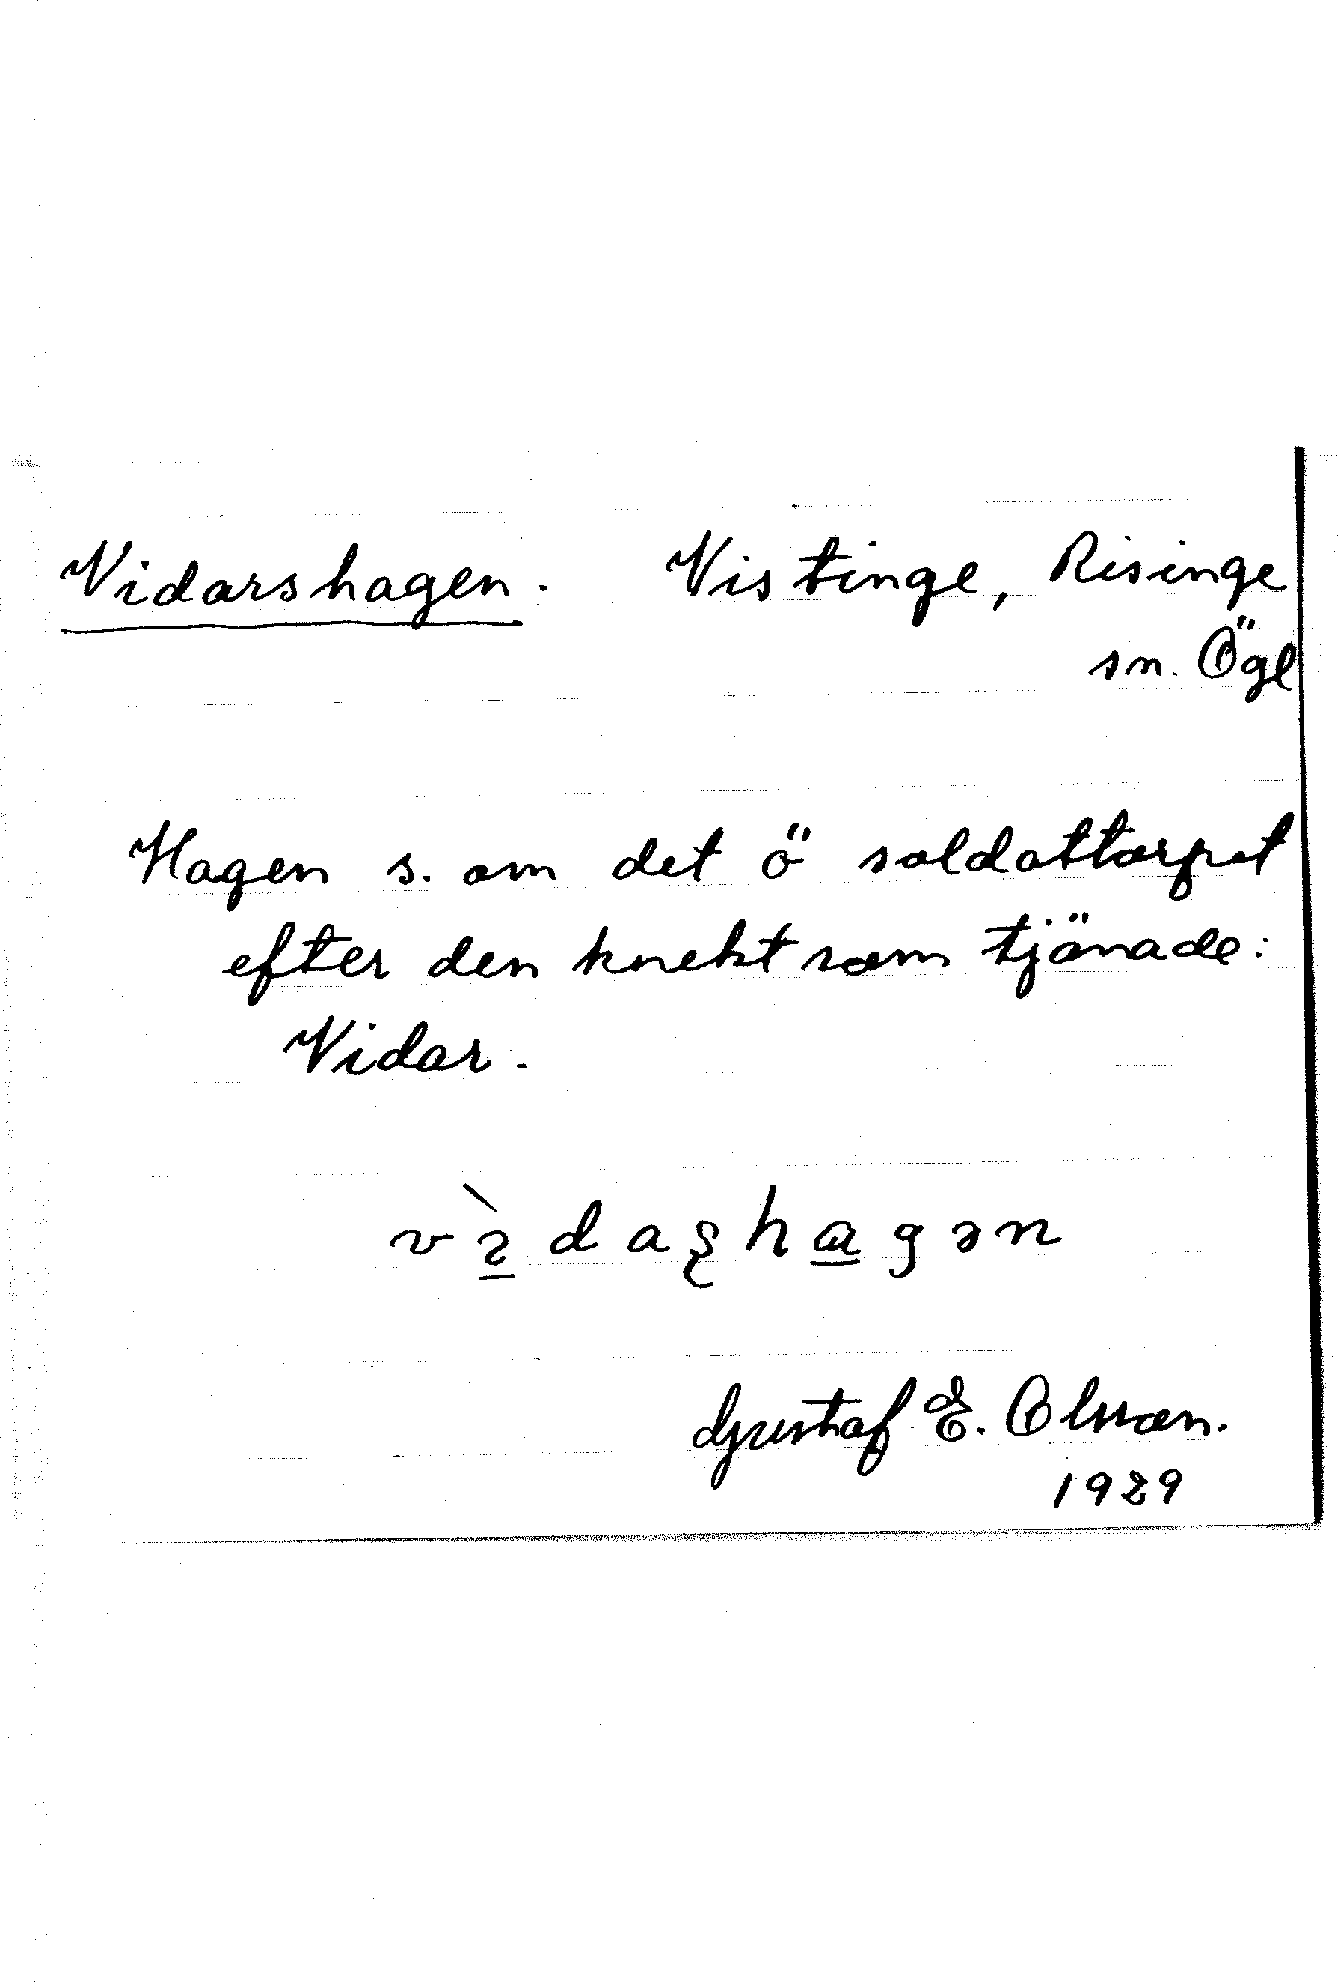 Vidarshagen. Vistinge, Risinge
sn. Ögl
Hagen s. om det ö soldattorpet
efter den knekt som tjänade:
Vidar.
1929
Gustaf E. Olsson.